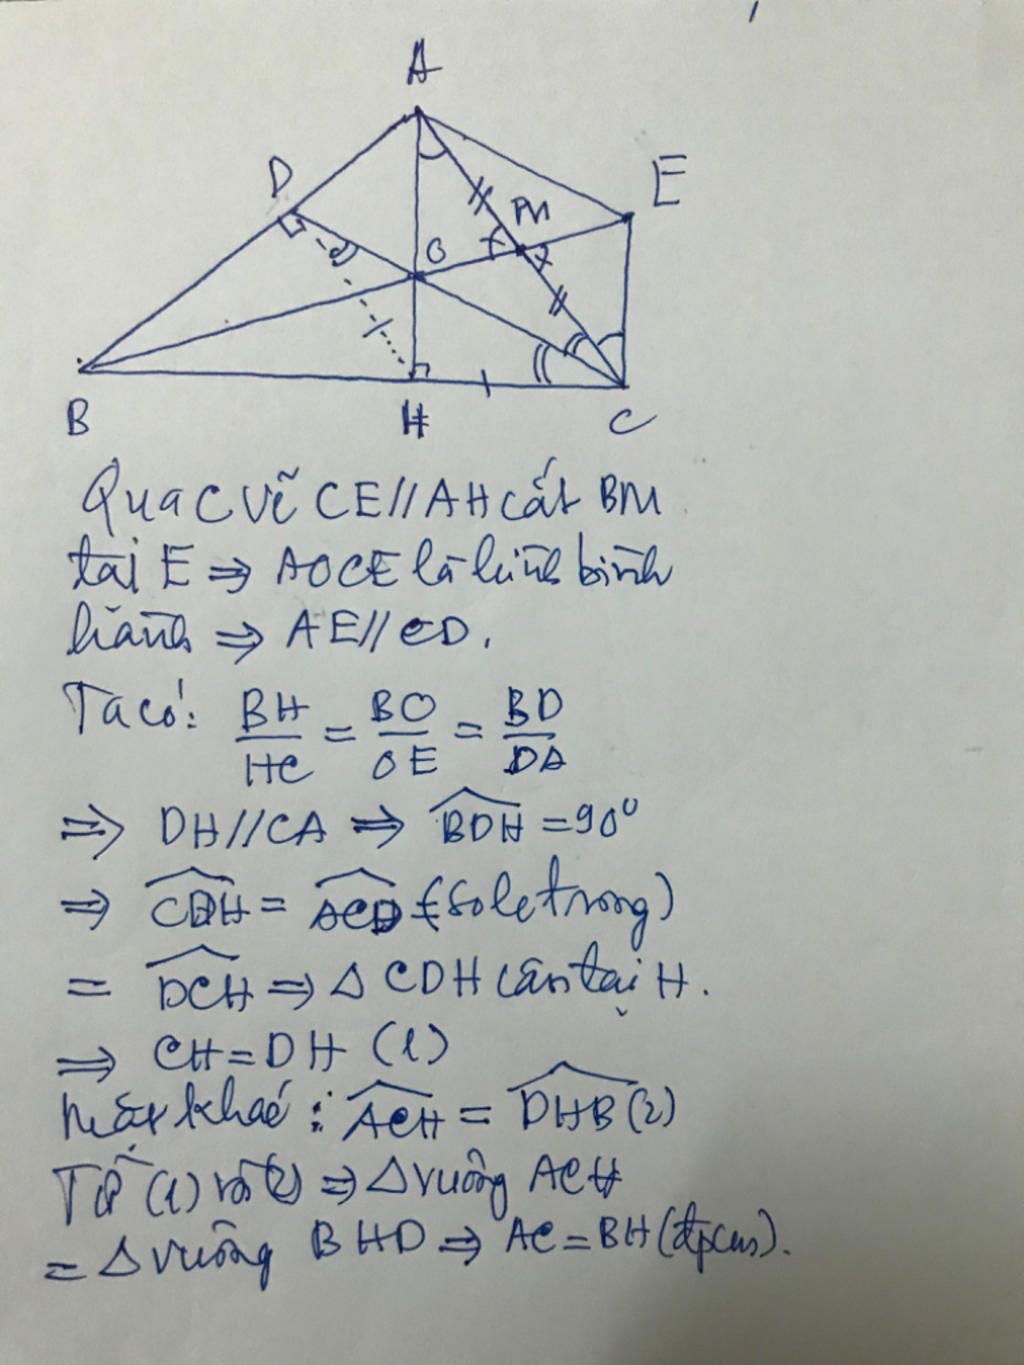 A
D
E
M
O
B
H
C
Qua C vẽ CE//AH cắt BM
tại E ⇒ AOCE là hình bình
hành ⇒ AE//CD.
Ta có: BH/HC = BO/OE = BD/DA
⇒ DH//CA ⇒ \widehat{BDH} = 90°
⇒ \widehat{CDH} = \widehat{ACD} (sole trong)
= \widehat{DCH} ⇒ Δ CDH cân tại H.
⇒ CH = DH (1)
Mặt khác: \widehat{ACH} = \widehat{DHB} (2)
Từ (1) và (2) ⇒ Δ vuông ACH
= Δ vuông BHD ⇒ AC = BH (đpcm).